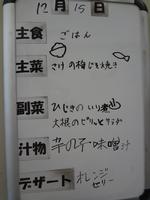 12月15日
主食 ごはん
主菜 さけの梅じそ焼き
副菜 ひじきのいり煮
大根のピリッとサラダ
汁物 辛の子味噌汁
デザート オレンジ
ゼリー